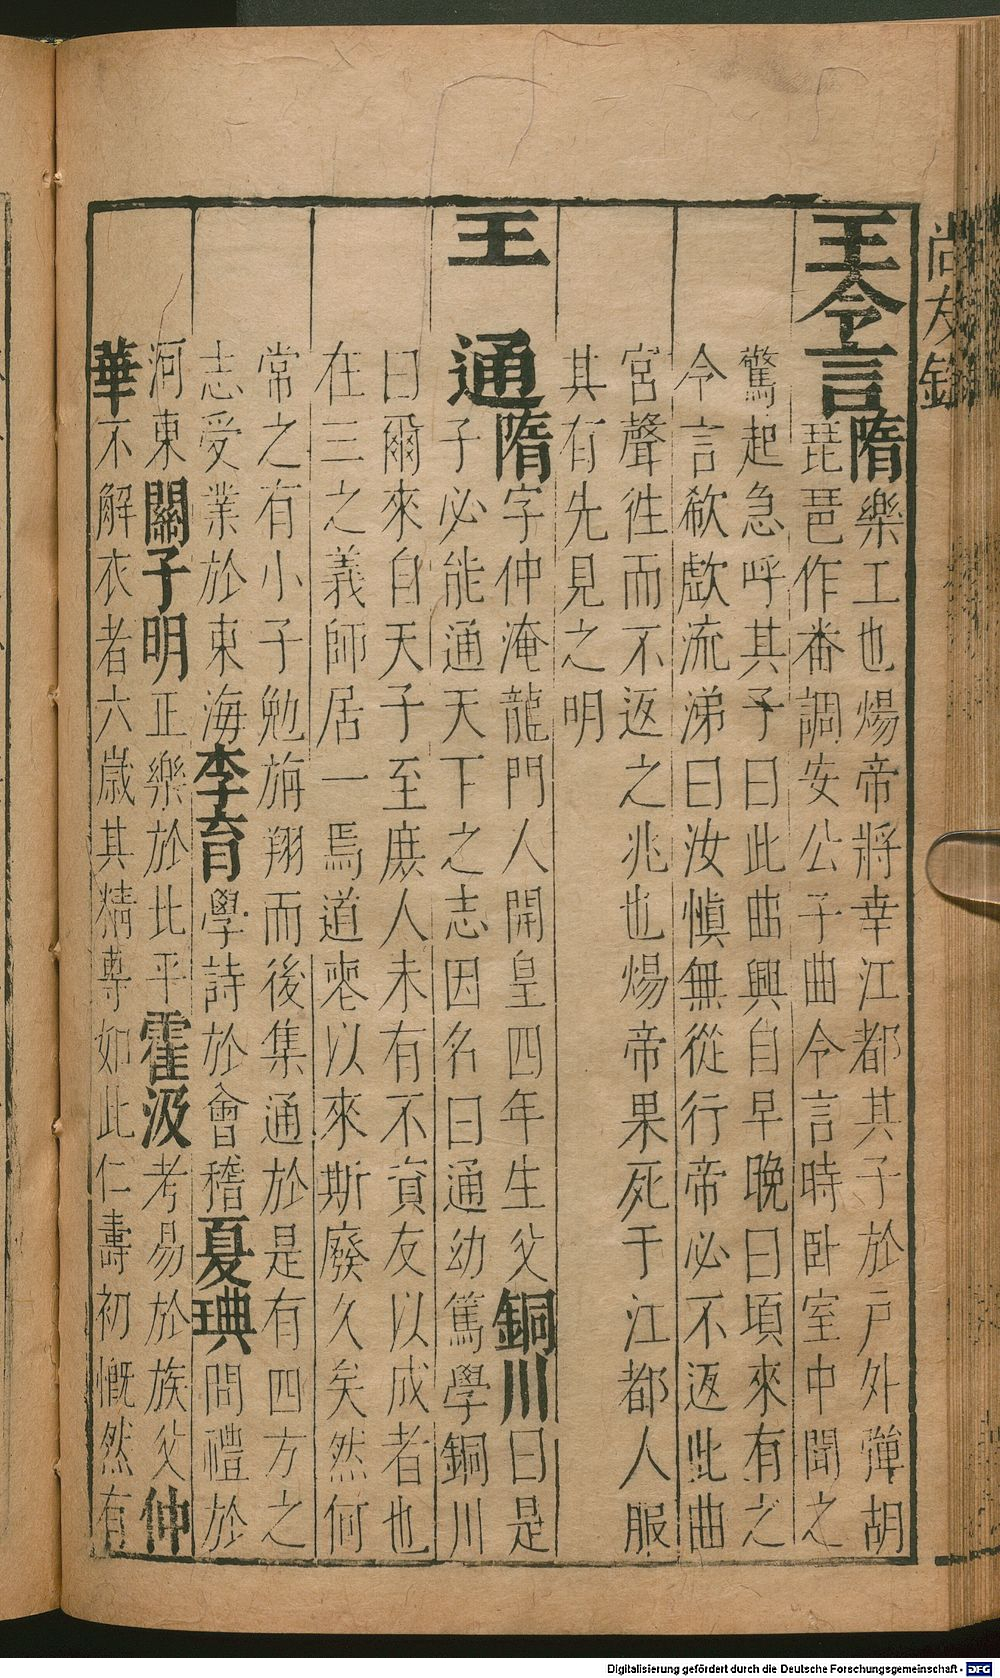 尚友錄
王令言隋樂工也煬帝將幸江都其子於戶外彈胡
琵琶作畨調安公子曲令言時臥室中聞之
驚起急呼其子曰此曲興自早晚曰頃來有之
令言欷歔流涕曰汝慎無從行帝必不返此曲
宮聲徃而不返之兆也煬帝果死于江都人服
其有先見之明
王通隋字仲淹龍門人開皇四年生父銅川曰是
子必能通天下之志因名曰通幼篤學銅川
曰爾來自天子至庶人未有不資友以成者也
在三之義師居一焉道喪以來斯廢久矣然何
常之有小子勉旃翔而後集通於是有四方之
志受業於東海李育學詩於會稽夏琠問禮於
河東關子明正樂於北平霍汲考易於族父仲
華不解衣者六歲其精專如此仁壽初慨然有
Digitalisierung gefördert durch die Deutsche Forschungsgemeinschaft - DFG